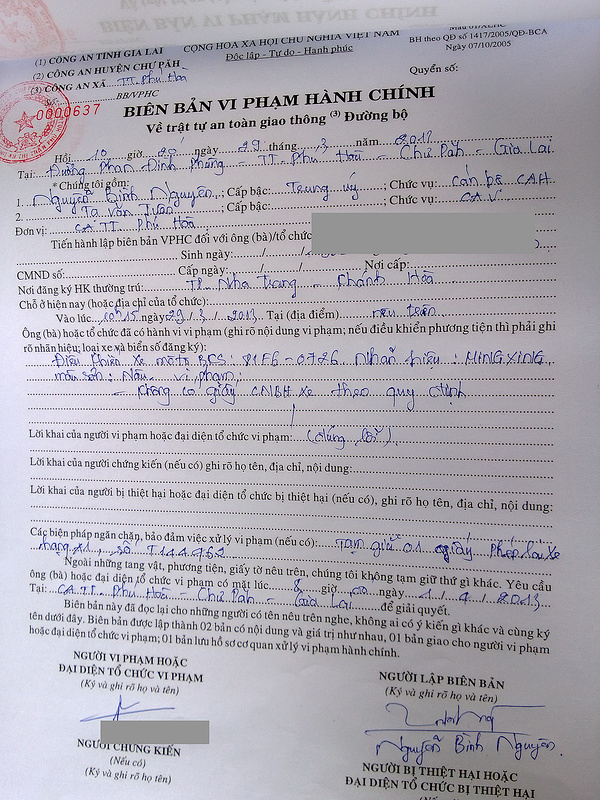 CỘNG HOÀ XÃ HỘI CHỦ NGHĨA VIỆT NAM
Độc lập - Tự do - Hạnh phúc
BH theo QĐ số 1417/2005/QĐ-BCA
Ngày 07/10/2005
(1) CÔNG AN TỈNH GIA LAI
(2) CÔNG AN HUYỆN CHƯ PĂH
(3) CÔNG AN XÃ TT. Phú Hoà
Số: BB/VPHC
Quyển số:
0000637
BIÊN BẢN VI PHẠM HÀNH CHÍNH
Về trật tự an toàn giao thông (3) Đường bộ
Hồi 10 giờ 20 ngày 29 tháng 3 năm 2013
Tại: Đường Phan Đình Phùng - TT. Phú Hoà - Chư Păh - Gia Lai
* Chúng tôi gồm:
1. Nguyễn Bình Nguyên; Cấp bậc: Trung úy; Chức vụ: Cán bộ CAH
2. Tạ Văn; Cấp bậc:; Chức vụ: CAV
Đơn vị: CATT Phú Hoà
Tiến hành lập biên bản VPHC đối với ông (bà)/tổ chức
Sinh ngày: / /
CMND số: Cấp ngày: / / Nơi cấp:
Nơi đăng ký HK thường trú: TP. Nha Trang - Khánh Hoà
Chỗ ở hiện nay (hoặc địa chỉ của tổ chức):
Vào lúc 10h15 ngày 29 / 3 / 2013 Tại (địa điểm) nêu trên
Ông (bà) hoặc tổ chức đã có hành vi vi phạm (ghi rõ nội dung vi phạm; nếu điều khiển phương tiện thì phải ghi
rõ nhãn hiệu; loại xe và biển số đăng ký):
Điều khiển xe môtô BKS: 81F6-0726 Nhãn hiệu: MINGXING
màu sơn: Nâu vi phạm:
- Không có giấy CNBH xe theo quy định
Lời khai của người vi phạm hoặc đại diện tổ chức vi phạm: (đúng lỗi)
Lời khai của người chứng kiến (nếu có) ghi rõ họ tên, địa chỉ, nội dung:
Lời khai của người bị thiệt hại hoặc đại diện tổ chức bị thiệt hại (nếu có), ghi rõ họ tên, địa chỉ, nội dung:
Các biện pháp ngăn chặn, bảo đảm việc xử lý vi phạm (nếu có): Tạm giữ 01 giấy phép lái xe
hạng A1, số T144762
Ngoài những tang vật, phương tiện, giấy tờ nêu trên, chúng tôi không tạm giữ thứ gì khác. Yêu cầu
ông (bà) hoặc đại diện tổ chức vi phạm có mặt lúc 8 giờ 00 ngày 1 / 4 / 2013
Tại: CATT. Phú Hoà - Chư Păh - Gia Lai để giải quyết.
Biên bản này đã đọc lại cho những người có tên nêu trên nghe, không ai có ý kiến gì khác và cùng ký
tên dưới đây. Biên bản được lập thành 02 bản có nội dung và giá trị như nhau, 01 bản giao cho người vi phạm
hoặc đại diện tổ chức vi phạm; 01 bản lưu hồ sơ cơ quan xử lý vi phạm hành chính.
NGƯỜI VI PHẠM HOẶC
ĐẠI DIỆN TỔ CHỨC VI PHẠM
(Ký và ghi rõ họ và tên)
NGƯỜI LẬP BIÊN BẢN
(Ký và ghi rõ họ và tên)
Nguyễn Bình Nguyên
NGƯỜI CHỨNG KIẾN
(Nếu có)
(Ký và ghi rõ họ và tên)
NGƯỜI BỊ THIỆT HẠI HOẶC
ĐẠI DIỆN TỔ CHỨC BỊ THIỆT HẠI